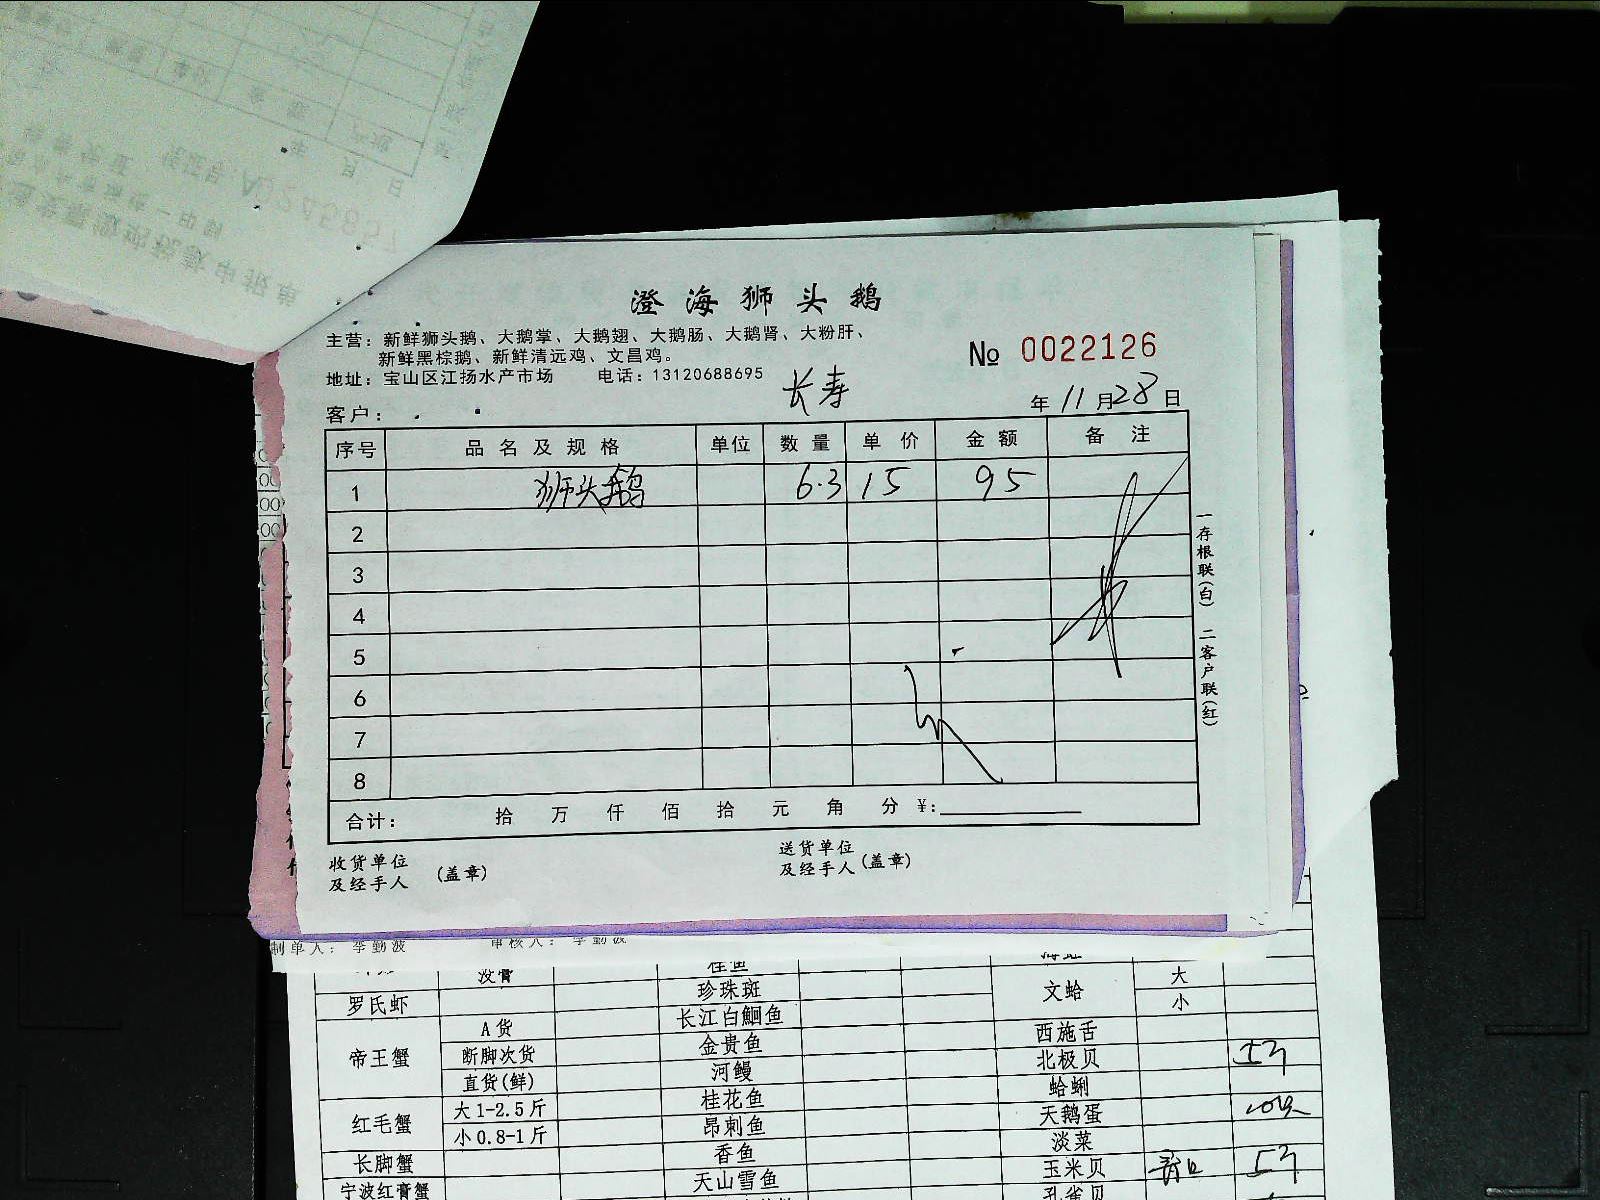 澄海狮头鹅
主营：新鲜狮头鹅、大鹅掌、大鹅翅、大鹅肠、大鹅肾、大粉肝、
新鲜黑棕鹅、新鲜清远鸡、文昌鸡。
№ 0022126
地址：宝山区江扬水产市场 电话：13120688695
长寿
客户：
年 11 月 28 日
序号 品名及规格 单位 数量 单价 金额 备注
1 狮头鹅 6.3 15 95
2
3
4
5
6
7
8
合计： 拾 万 仟 佰 拾 元 角 分 ¥：
一存根联(白) 二客户联(红)
收货单位及经手人 (盖章)
送货单位及经手人 (盖章)
制单人：李勤波 审核人：李勤波
没膏 桂鱼
罗氏虾 珍珠斑 文蛤 大
长江白鮰鱼 小
帝王蟹 A货 金贵鱼 西施舌
断脚次货 河鳗 北极贝
直货(鲜) 桂花鱼 蛤蜊
红毛蟹 大1-2.5斤 昂刺鱼 天鹅蛋
小0.8-1斤 香鱼 淡菜
长脚蟹 天山雪鱼 玉米贝
宁波红膏蟹 孔雀贝